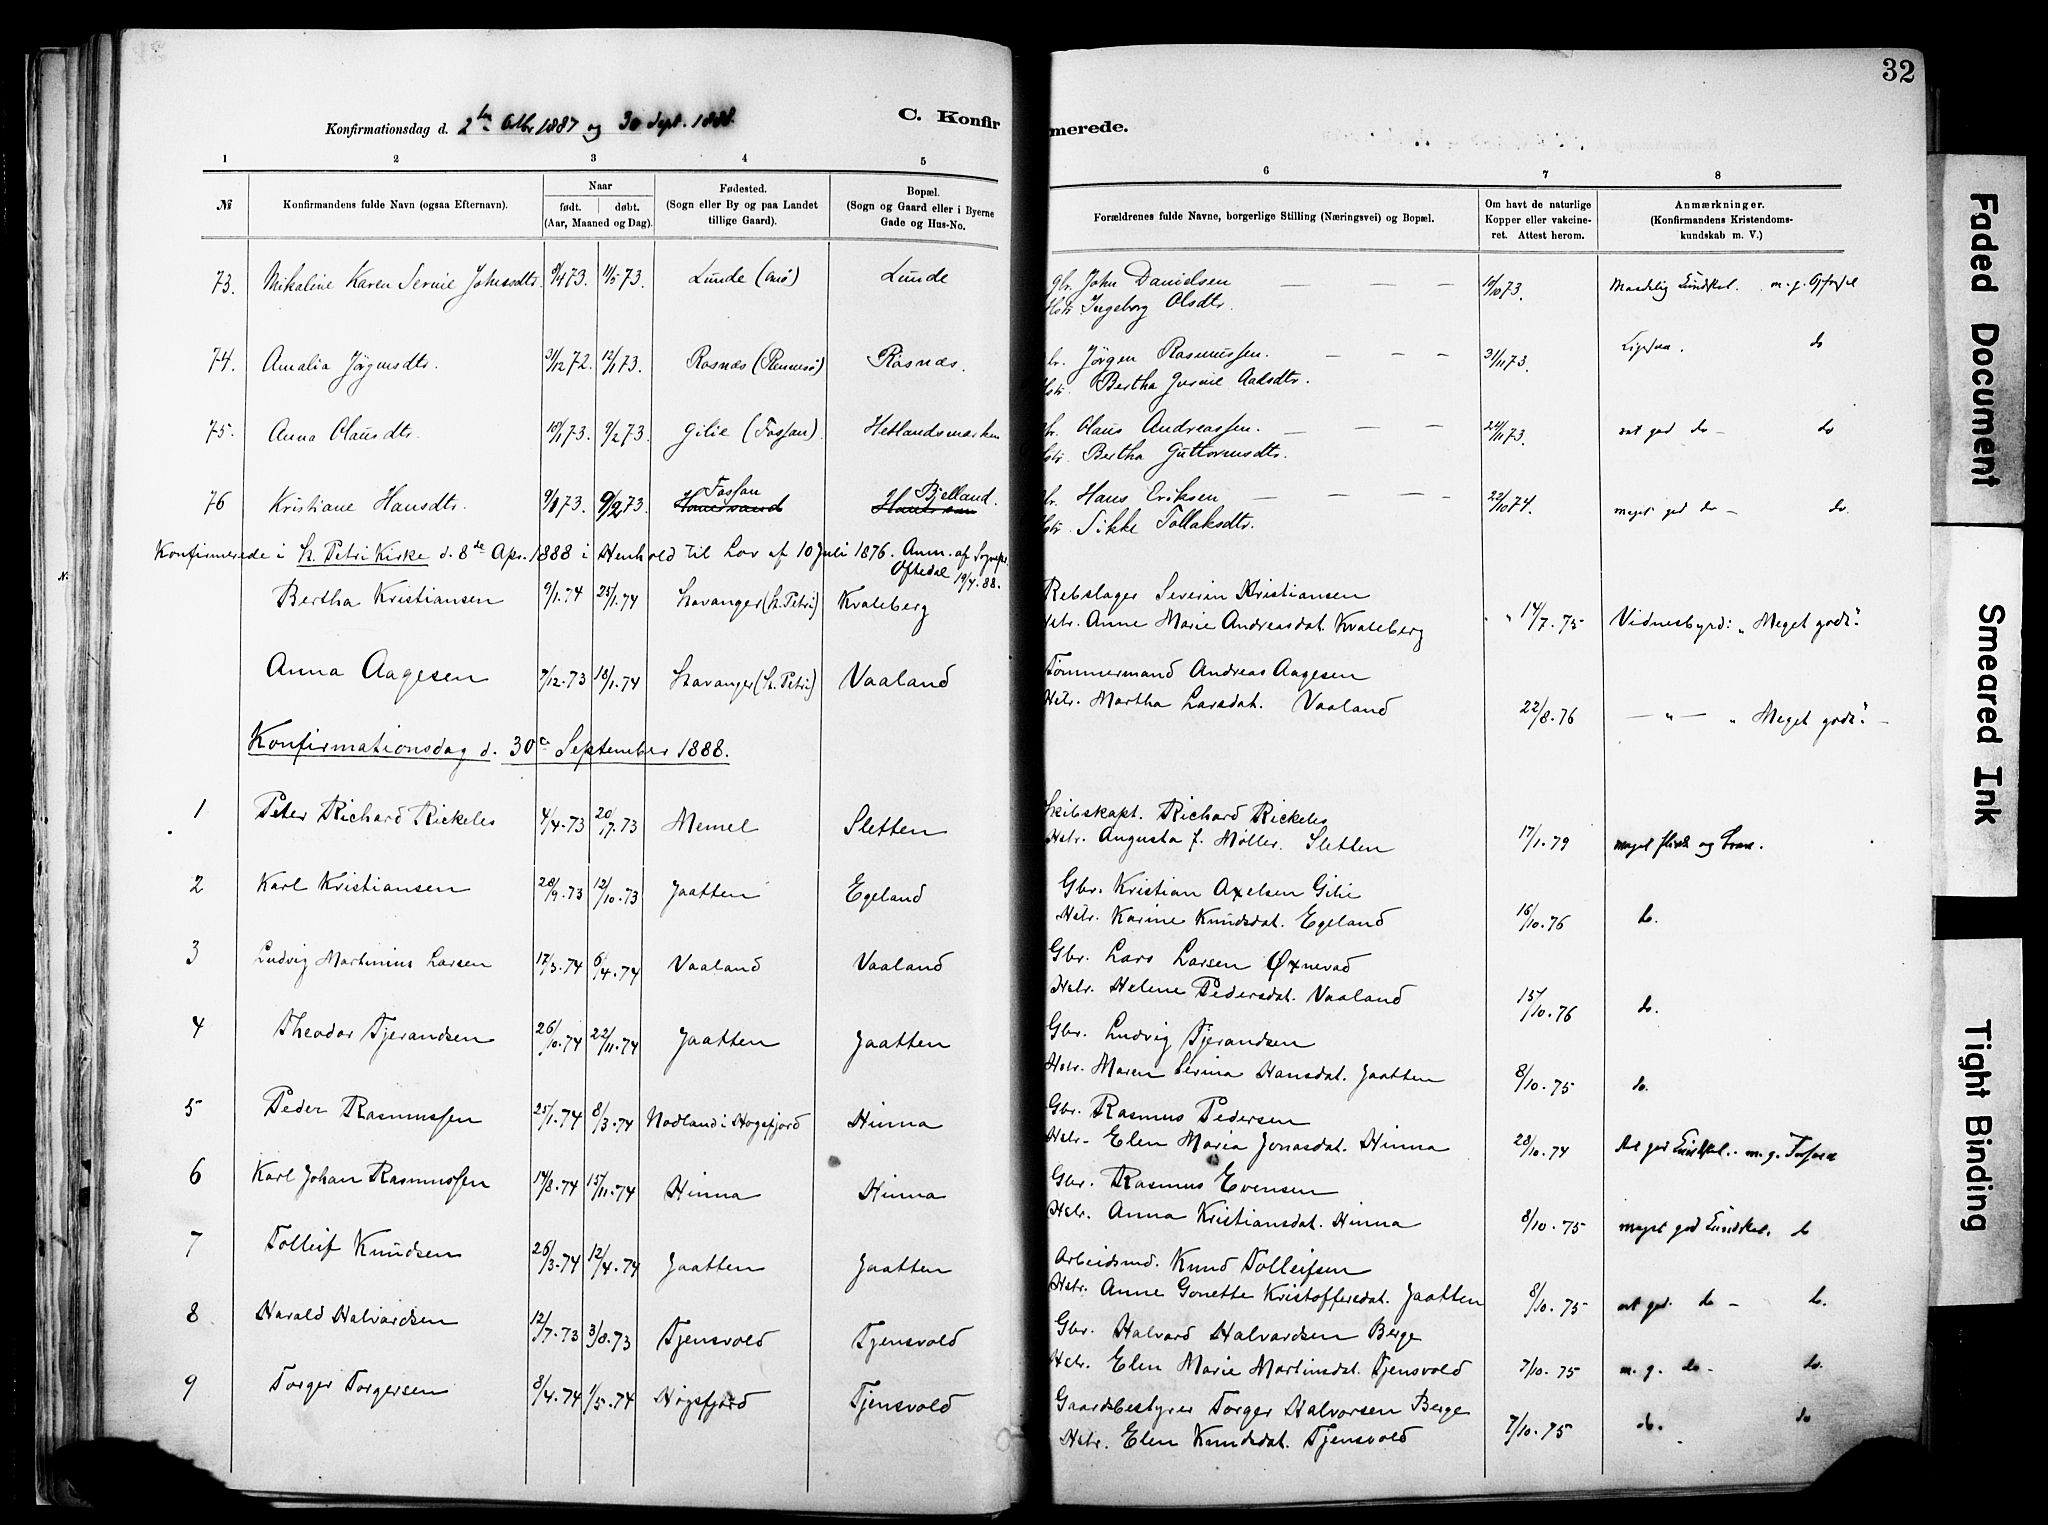 32
Konfirmationsdag d. 2den Otbr 1887 og 30 Sept. 1888.
C. Konfirmerede.
1 2 3 4 5 6 7 8
№ Konfirmandens fulde Navn (ogsaa Efternavn). Naar født. døbt. (Aar, Maaned og Dag). Fødested. (Sogn eller By og paa Landet tillige Gaard). Bopæl. (Sogn og Gaard eller i Byerne Gade og Hus-No. Forældrenes fulde Navne, borgerlige Stilling (Næringsvei) og Bopæl. Om havt de naturlige Kopper eller vakcineret. Attest herom. Anmærkninger. (Konfirmandens Kristendomskundskab m. V.)
73. Mikaline Karen Serine Johnsdtr. 8/4 73. 11/5 73. Lunde Lunde Gbr. John Danielsen — — — 10/10 73. Maadelig Kundskal. m. g.
Hstr Ingeborg Olsdtr.
74. Amalia Jörgensdtr. 31/12 72. 12/1 73. Rosnæs (Rennesö) Rosnæs. Gbr. Jörgen Rasmussen. — — — 31/11 73. Ligesaa. do
Hstr. Bertha Gurine Aadsdtr.
75. Anna Clausdtr. 10/1 73. 9/2 73. Gilie (Fossan). Hetlandsmarken Gbr. Claus Andreassen. — — — 24/11 73. do — do
Hstr. Bertha Guttormsdtr.
76 Kristiane Hansdtr. 9/1 73. 9/2 73. Fossan Bjelland. Gbr. Hans Eriksen — — — 22/10 74. meget god do — do.
Hstr. Sikke Tollaksdtr.
Konfirmerede i St. Petri Kirke d. 8de Apr. 1888 i Henhold til Lov af 10 Juli 1876. Anm. af Sognepr. Oftedal 19/4. 88.
Bertha Kristiansen 9/1. 74 25/1. 74 Stavanger (St. Petri) Kvaleberg Rebslager Severin Kristiansen 14/7. 75 Vidnesbyrd: „Meget godt".
Hstr. Anne Marie Andreasdat. Kvaleberg
Anna Aagesen 7/12. 73 18/1. 74 Stavanger (St. Petri) Vaaland Tømmermand Andreas Aagesen
Hstr. Martha Larsdat. Vaaland 22/8. 76 — „ — „Meget godt". —
Konfirmationsdag d. 30te September 1888.
1 Peter Richard Rickeles 4/4. 73 20/7. 73 Memel Sletten Skibskapt. Richard Rickeles
Hstr. Augusta f. Møller. Sletten 17/1. 79 meget flink og brav.
2 Karl Kristiansen 28/9. 73 12/10. 73 Jaatten Egeland Gbr. Kristian Axelsen Gilie
Hstr. Karine Knudsdat. Egeland 16/10. 76 do.
3 Ludvig Martinius Larsen 17/3. 74 6/4. 74 Vaaland Vaaland Gbr. Lars Larsen Øxnevad
Hstr. Helene Pedersdat. Vaaland 15/10. 76 do.
4 Theodor Tjerandsen 26/10. 74 22/11. 74 Jaatten Jaatten Gbr. Ludvig Tjerandsen
Hstr. Maren Serina Hansdat. Jaatten 8/10. 75 do.
5 Peder Rasmussen 25/1. 74 8/3. 74 Nodland i Høgsfjord Hinna Gbr. Rasmus Pedersen
Hstr. Elen Maria Jonasdat. Hinna 28/10. 74 god Kundskal. m. g.
6 Karl Johan Rasmussen 14/8. 74 15/11. 74 Hinna Hinna Gbr. Rasmus Evensen
Hstr. Anna Kristiansdat. Hinna 8/10. 75 meget god Kundskal. do
7 Tolleif Knudsen 26/3. 74 12/4. 74 Jaatten Jaatten Arbeidsmd. Knud Tolleifsen
Hstr. Anne Gonette Kristoffersdat. Jaatten 8/10. 75 god. do — do.
8 Harald Halvardsen 12/7. 73 3/8. 73 Tjensvold Tjensvold Gbr. Halvard Halvardsen Berge
Hstr. Elen Marie Martinsdat. Tjensvold 7/10. 75 m. g. do — do.
9 Torger Torgersen 8/4. 74 1/5. 74 Høgsfjord Tjensvold Gaardsbestyrer Torger Halvorsen Berge
Hstr. Elen Knudsdat. Tjensvold 7/10. 75 do. do
Faded Document
Smeared Ink
Tight Binding